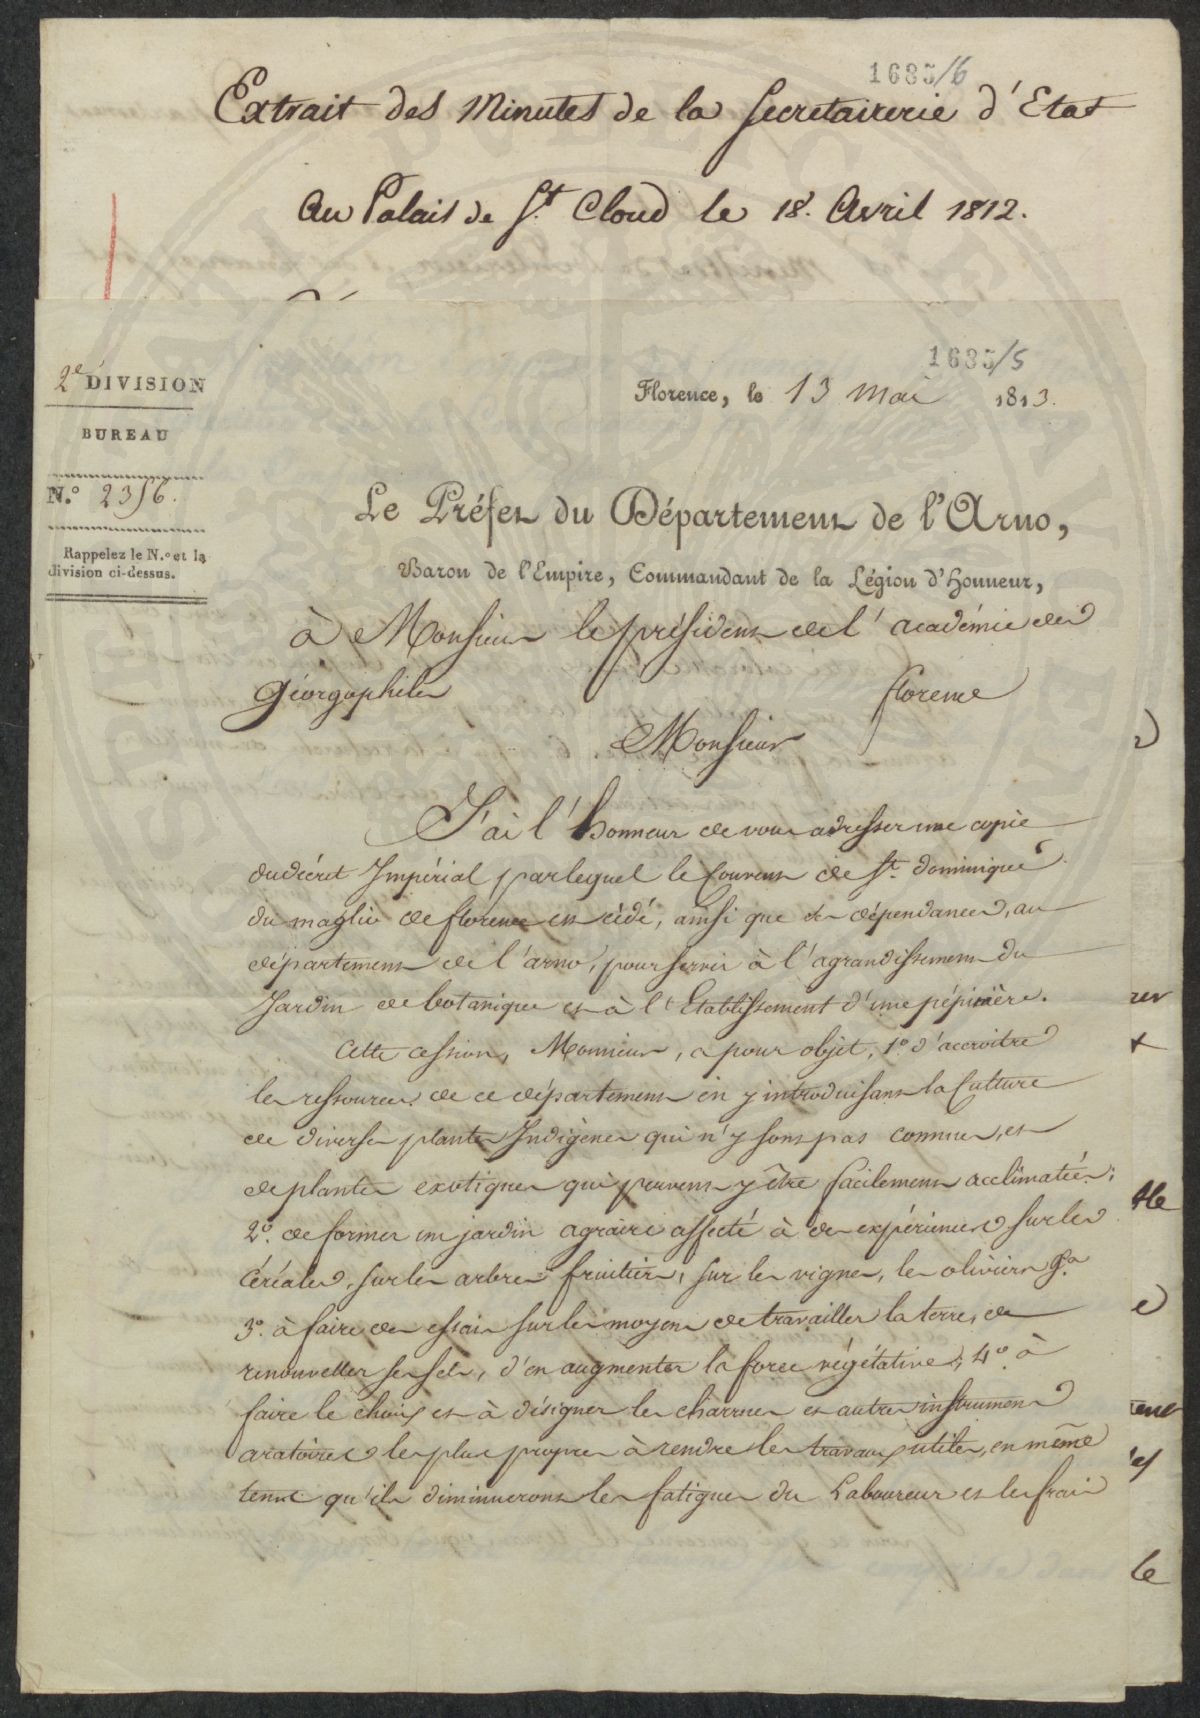 1685/6
Extrait des Minutes de la Secretairerie d'Etat
Au Palais de St. Cloud le 18. Avril 1812.
1685/5
2e DIVISION
BUREAU
N.o 2356.
Rappelez le N.o et la
division ci-dessus.
Florence, le 13 mai 1813.
Le Préfet du Département de l'Arno,
Baron de l'Empire, Commandant de la Légion d'Honneur,
à Monsieur le président de l'académie des
Géorgophiles florence
Monsieur
J'ai l'honneur de vous adresser une copie
du décret Impérial par lequel le Couvent de St. dominique
du maglio de florence est cédé, ainsi que ses dépendances, au
département de l'arno, pour servir à l'agrandissement du
Jardin de botanique et à l'Etablissement d'une pépinière.
Cette cession, Monsieur, a pour objet, 1o. d'accroitre
les ressources de ce département en y introduisant la Culture
de diverses plantes Indigènes qui n'y sont pas connues, et
de plantes exotiques qui peuvent y être facilement acclimatées;
2o. de former un jardin agraire affecté à des expériences sur les
Céréales, sur les arbres fruitiers, sur les vignes, les oliviers &a
3o. à faire des essais sur les moyens de travailler la terre, de
renouveller ses sels, d'en augmenter la force végétative; 4o. à
faire le choix et à désigner les charrues et autres instrumens
aratoires les plus propres à rendre les travaux utiles, en même
tems qu'ils diminueront les fatigues du Laboureur et les frais